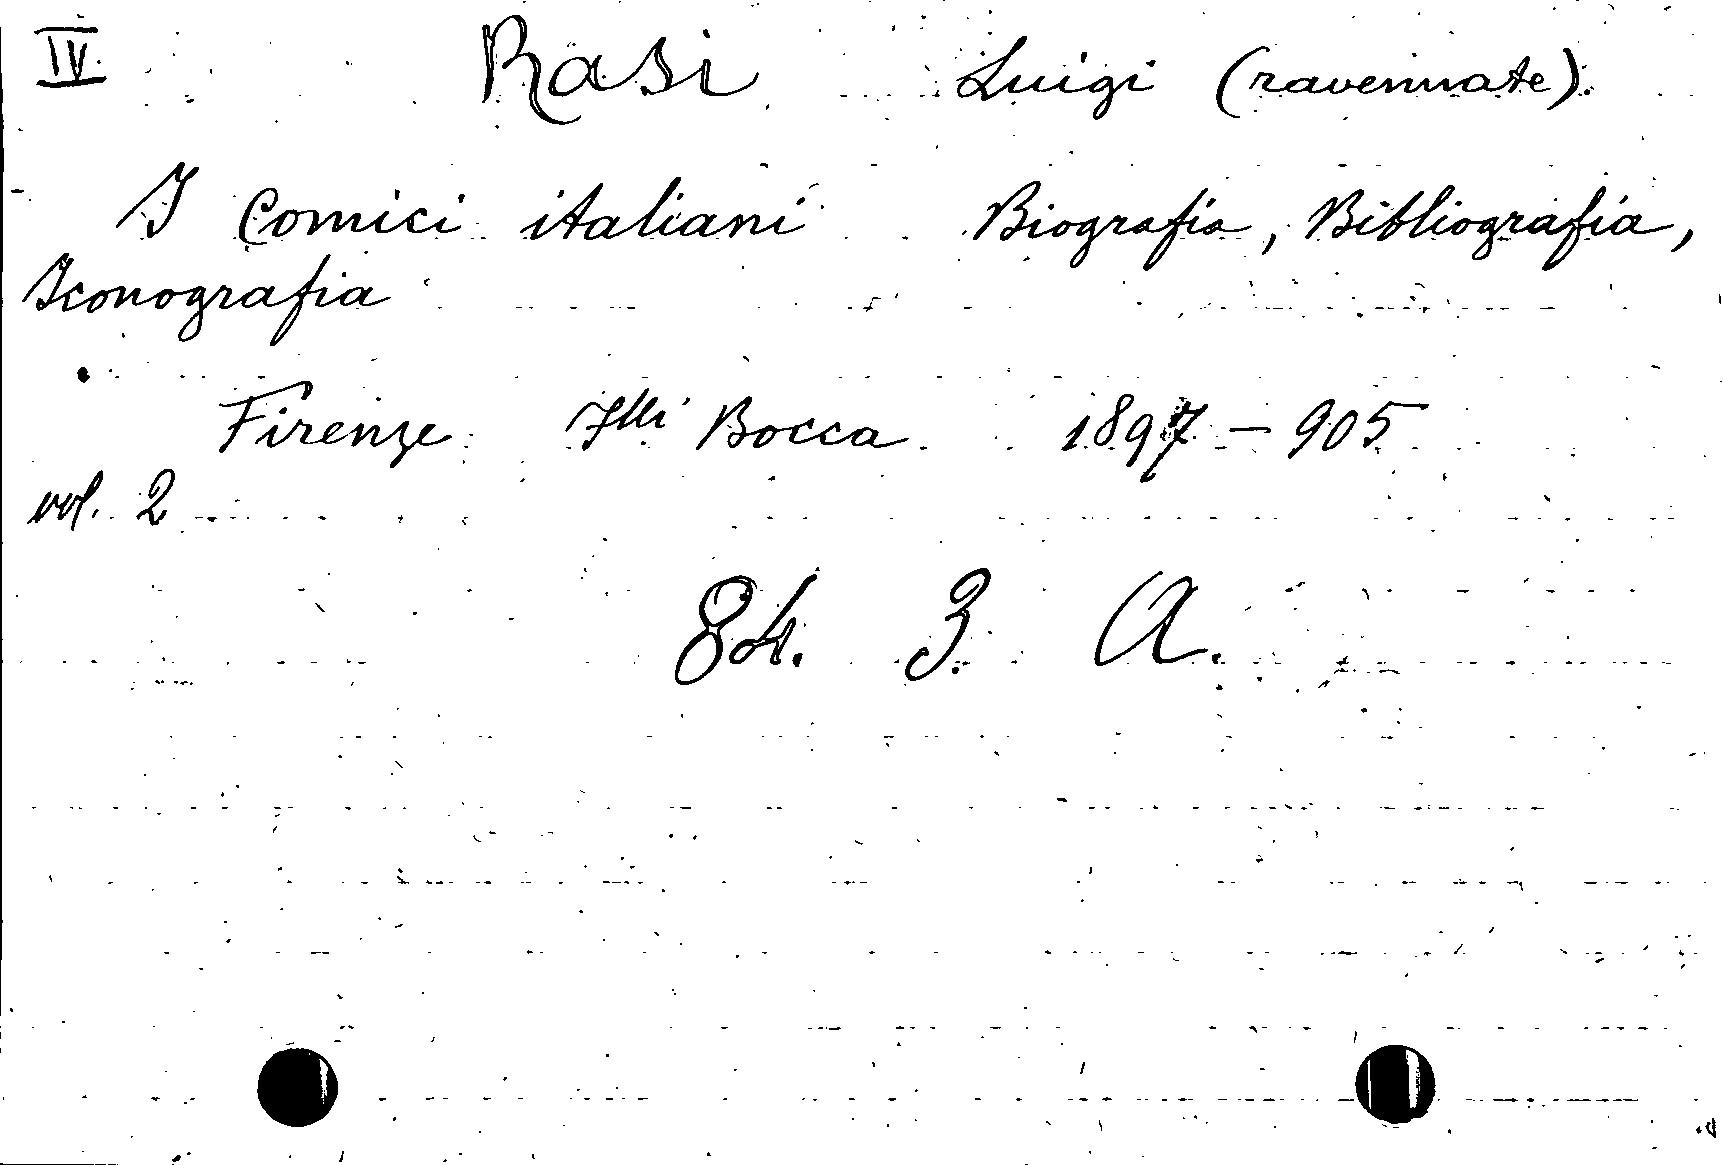 IV. Rasi Luigi (ravennate).
I Comici italiani Biografia, Bibliografia,
Iconografia
Firenze Flli Bocca 1897 - 905
vol. 2
84. 3. A.